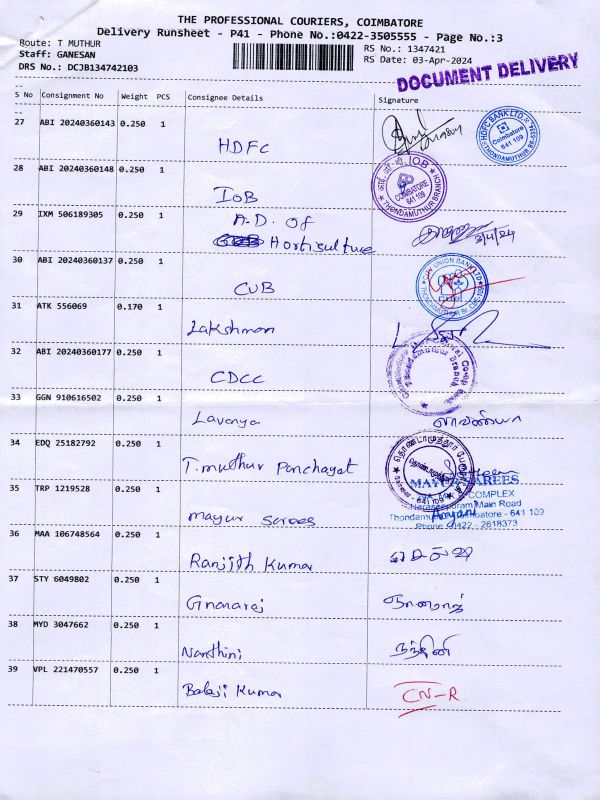 THE PROFESSIONAL COURIERS, COIMBATORE
Delivery Runsheet - P41 - Phone No.:0422-3505555 - Page No.:3
Route: T MUTHUR
Staff: GANESAN
DRS No.: DCJB134742103
RS No.: 1347421
RS Date: 03-Apr-2024
DOCUMENT DELIVERY
S No Consignment No Weight PCS Consignee Details Signature
27 ABI 20240360143 0.250 1 HDFC
HDFC BANK LTD. Coimbatore 641 109
28 ABI 20240360148 0.250 1 IOB
I.O.B. COIMBATORE 641 109 THONDAMUTHUR BRANCH
29 IXM 506189305 0.250 1 A.D. of
Horticulture 3/4/24
30 ABI 20240360137 0.250 1 CUB
CITY UNION BANK LTD CUB THONDAMUTHUR Br.
31 ATK 556069 0.170 1 Lakshman
32 ABI 20240360177 0.250 1 CDCC
33 GGN 910616502 0.250 1 Lavanya லாவண்யா
34 EDQ 25182792 0.250 1 T.muthur Panchayat
641 109
35 TRP 1219528 0.250 1 mayur sarees
MAYUR SAREES
COMPLEX
Naraseepuram Main Road
641 109
Phone 0422 - 2618373
36 MAA 106748564 0.250 1 Ranjith Kumar
37 STY 6049802 0.250 1 Gnanaraj ஞானராஜ்
38 MYD 3047662 0.250 1 Nandhini நந்தினி
39 VPL 221470557 0.250 1 Balaji Kumar CN-R